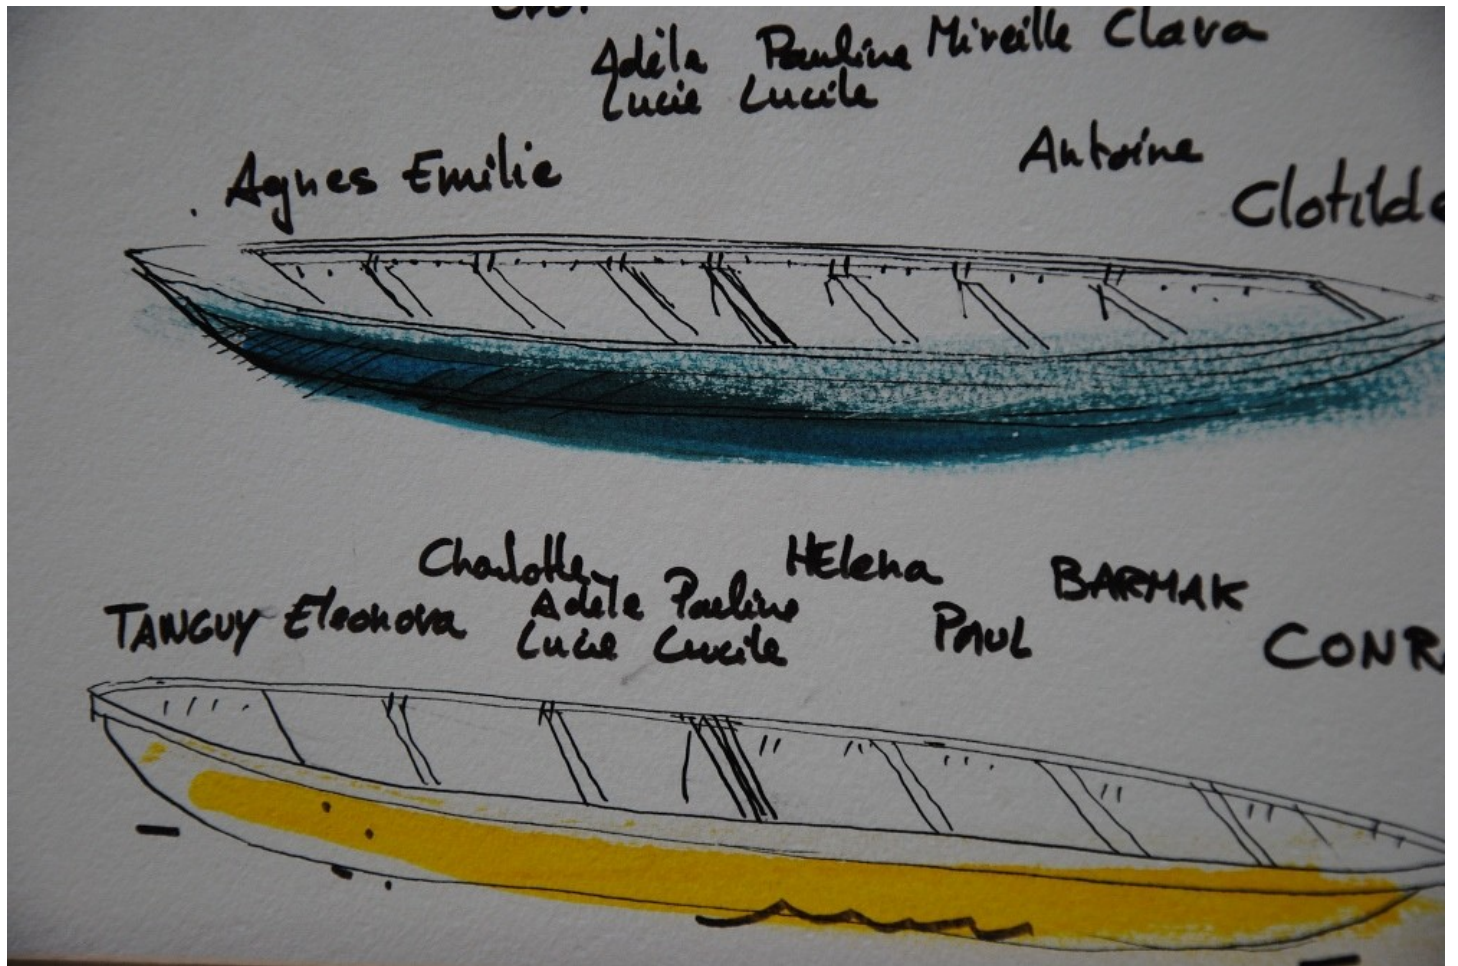 Adèle Pauline Mireille Clara
Lucie Lucile
Antoine
Agnes Emilie
Clotilde
Charlotte HElena BARMAK
TANGUY Eleonora Adèle Pauline PAUL
Lucie Lucile CONR